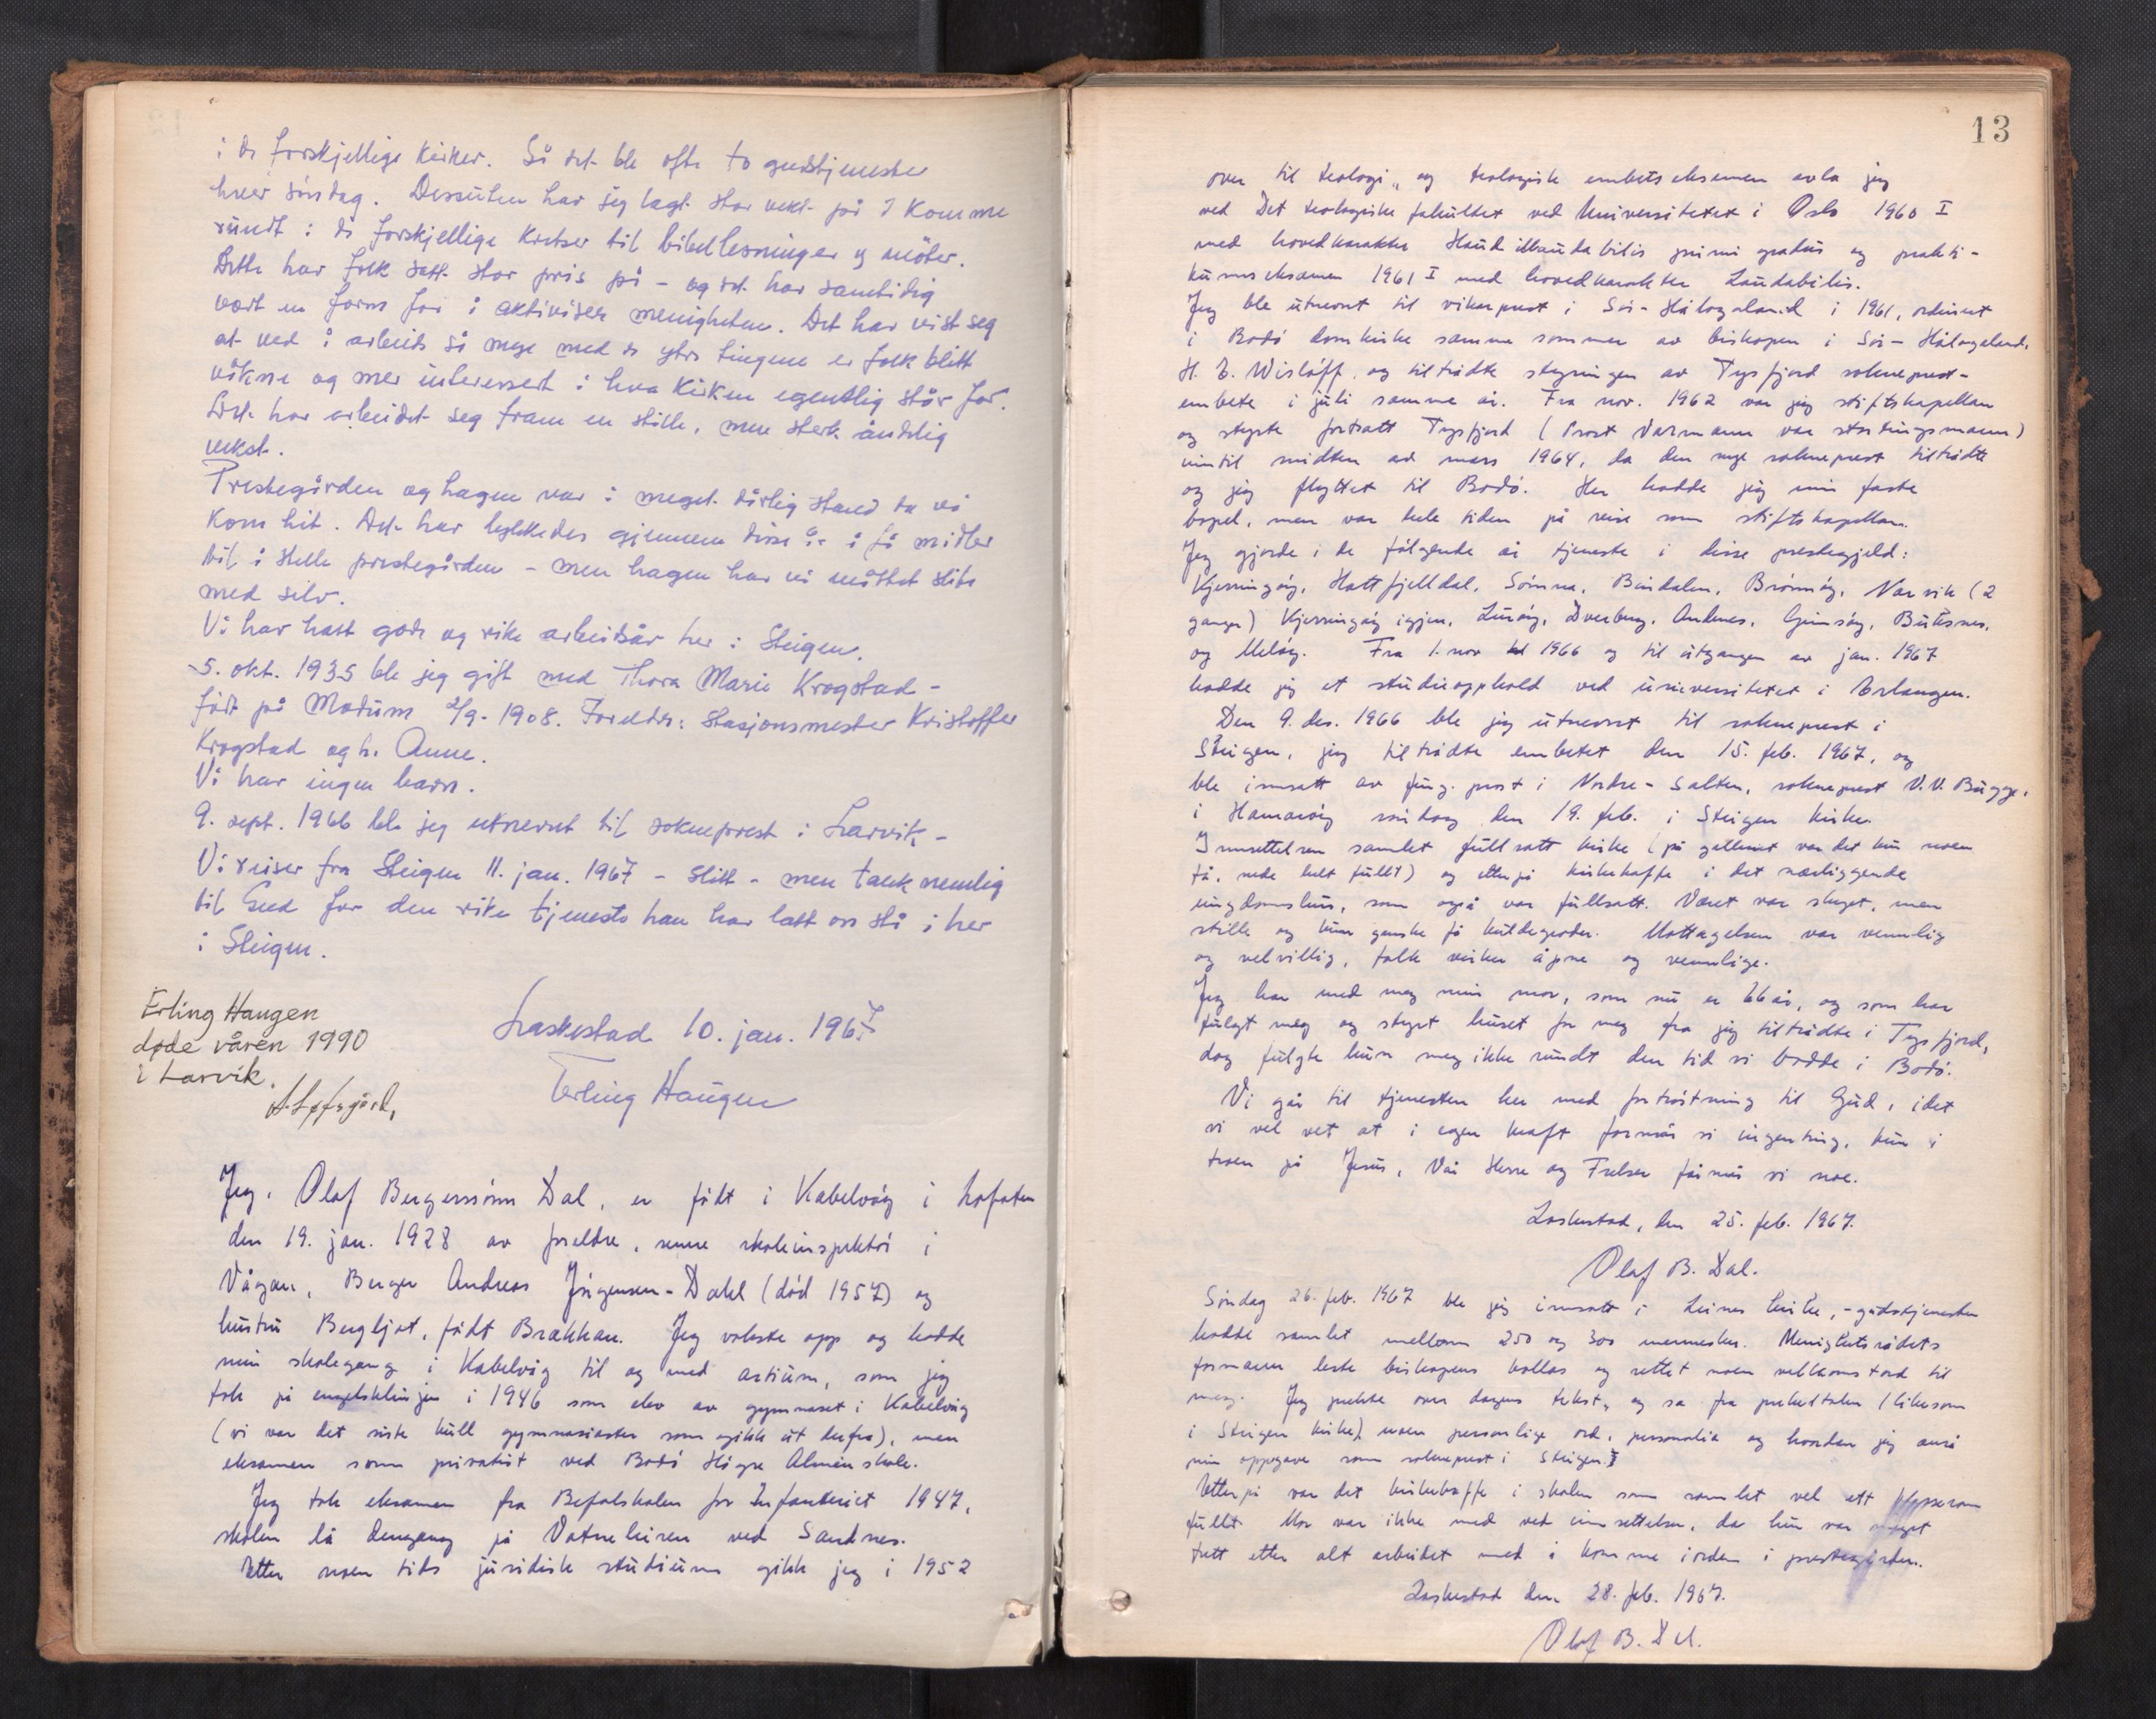 i de forskjellige kirker. Så det ble ofte to gudstjenester
hver søndag. Dessuten har jeg lagt stor vekt på å komme
rundt i de forskjellige kretser til bibellesninger og møter.
Dette har folk satt stor pris på - og det har samtidig
vært en form for å aktivisere menigheten. Det har vist seg
at ved å arbeide så mye med de ytre tingene er folk blitt
våkne og mer interessert i hva kirken egentlig står for.
Det har arbeidet seg fram en stille, men sterk åndelig
vekst.
Prestegården og hagen var i meget dårlig stand da vi
kom hit. Det har lykkedes gjennem disse år å få midler
til å stelle prestegården - men hagen har vi måttet slite
med selv.
Vi har hatt gode og rike arbeidsår her i Steigen.
5. okt. 1935 ble jeg gift med Thora Marie Krogstad -
født på Modum 2/9-1908. Foreldre: stasjonsmester Kristoffer
Krogstad og h. Anne.
Vi har ingen barn.
9. sept. 1966 ble jeg utnevnt til sokneprest i Larvik -
Vi reiser fra Steigen 11. jan. 1967 - slitt - men takknemlig
til Gud for den rike tjeneste han har latt oss stå i her
i Steigen.
Laskestad 10. jan. 1967
Erling Haugen
Erling Haugen
døde våren 1990
i Larvik.
Jeg, Olaf Bergerssønn Dal, er født i Kabelvåg i Lofoten
den 19. jan. 1928 av foreldre, senere skoleinspektør i
Vågan, Berger Andreas Jørgensen-Dahl (død 1957) og
hustru Bergljot, født Brækkan. Jeg vokste opp og hadde
min skolegang i Kabelvåg til og med artium, som jeg
tok på engelsklinjen i 1946 som elev av gymnaset i Kabelvåg
(vi var det siste kull gymnasiaster som gikk ut derfra), men
eksamen som privatist ved Bodø Høgre Almenskole.
Jeg tok eksamen fra Befalsskolen for Infanteriet 1947,
skolen lå dengang på Vatneleiren ved Sandnes.
Etter noen tids juridisk studium gikk jeg i 1952
13
over til teologi, og teologisk embetseksamen avla jeg
ved Det teologiske fakultet ved Universitetet i Oslo 1960 I
med hovedkarakter Haud illaudabilis primi gradus og prakti-
kumseksamen 1961 I med hovedkarakter Laudabilis.
Jeg ble utnevnt til vikarprest i Sør-Hålogaland i 1961, ordinert
i Bodø domkirke samme sommer av biskopen i Sør-Hålogaland,
H. E. Wisløff, og tiltrådte styringen av Tysfjord sokneprest-
embete i juli samme år. Fra nov. 1962 var jeg stiftskapellan
og styrte fortsatt Tysfjord (Prost Varmann var stortingsmann)
inntil midten av mars 1964, da den nye sokneprest tiltrådte
og jeg flyttet til Bodø. Her hadde jeg min faste
bopel, men var hele tiden på reise som stiftskapellan.
Jeg gjorde i de følgende år tjeneste i disse prestegjeld:
Kjerringøy, Hattfjelldal, Sømna, Bindalen, Brønnøy, Narvik (2
ganger) Kjerringøy igjen, Lurøy, Dverberg, Andenes, Gimsøy, Buksnes,
og Meløy. Fra 1. nov 1966 og til utgangen av jan. 1967
hadde jeg et studieopphold ved universitetet i Erlangen.
Den 9. des. 1966 ble jeg utnevnt til sokneprest i
Steigen, jeg tiltrådte embetet den 15. feb. 1967, og
ble innsatt av fung. prost i Nordre-Salten, sokneprest V.V. Bugge,
i Hamarøy søndag den 19. feb. i Steigen kirke.
Innsettelsen samlet fullsatt kirke (på galleriet var det kun noen
få, nede helt fullt) og etterpå kirkekaffe i det nærliggende
ungdomshus, som også var fullsatt. Været var skyet, men
stille og kun ganske få kuldegrader. Mottagelsen var vennlig
og velvillig, folk virker åpne og vennlige.
Jeg har med meg min mor, som nå er 66 år, og som har
fulgt meg og styrt huset for meg fra jeg tiltrådte i Tysfjord,
dog fulgte hun meg ikke rundt den tid vi bodde i Bodø.
Vi går til tjenesten her med fortrøstning til Gud, idet
vi vel vet at i egen kraft formår vi ingenting, kun i
troen på Jesus, Vår Herre og Frelser formår vi noe.
Laskestad, den 25. feb. 1967.
Olaf B. Dal.
Søndag 26. feb. 1967 ble jeg innsatt i Leines kirke, - gudstjenesten
hadde samlet mellom 250 og 300 mennesker. Menighetsrådets
formann leste biskopens kallas og rettet noen velkomstord til
meg. Jeg prekte over dagens tekst, og sa fra prekestolen (likesom
i Steigen kirke) noen personlige ord, personalia og hvordan jeg anså
min oppgave som sokneprest i Steigen.
Etterpå var det kirkekaffe i skolen som samlet vel ett klasserom
fullt. Mor var ikke med ved innsettelsen, da hun var meget
trett etter alt arbeidet med å komme i orden i prestegården.
Laskestad den 28. feb. 1967.
Olaf B. Dal.